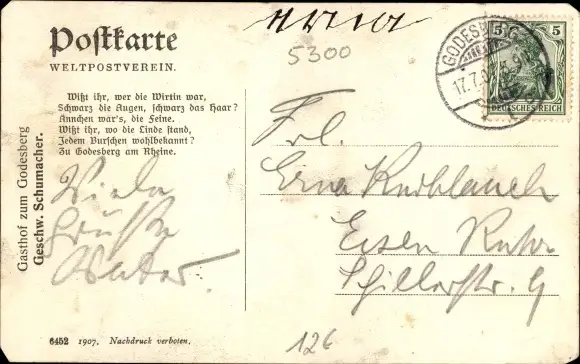 5300
Postkarte
WELTPOSTVEREIN.
Wißt ihr, wer die Wirtin war,
Schwarz die Augen, schwarz das Haar?
Ännchen war's, die Feine.
Wißt ihr, wo die Linde stand,
Jedem Burschen wohlbekannt?
Zu Godesberg am Rheine.
Gasthof zum Godesberg
Geschw. Schumacher.
Viele
Grüße
Vater.
GODESBERG
17.7.
5 5
DEUTSCHES REICH
Frl.
Erna Knoblauch
Essen Ruhr
Schillerstr. 9
126
6452 1907. Nachdruck verboten.